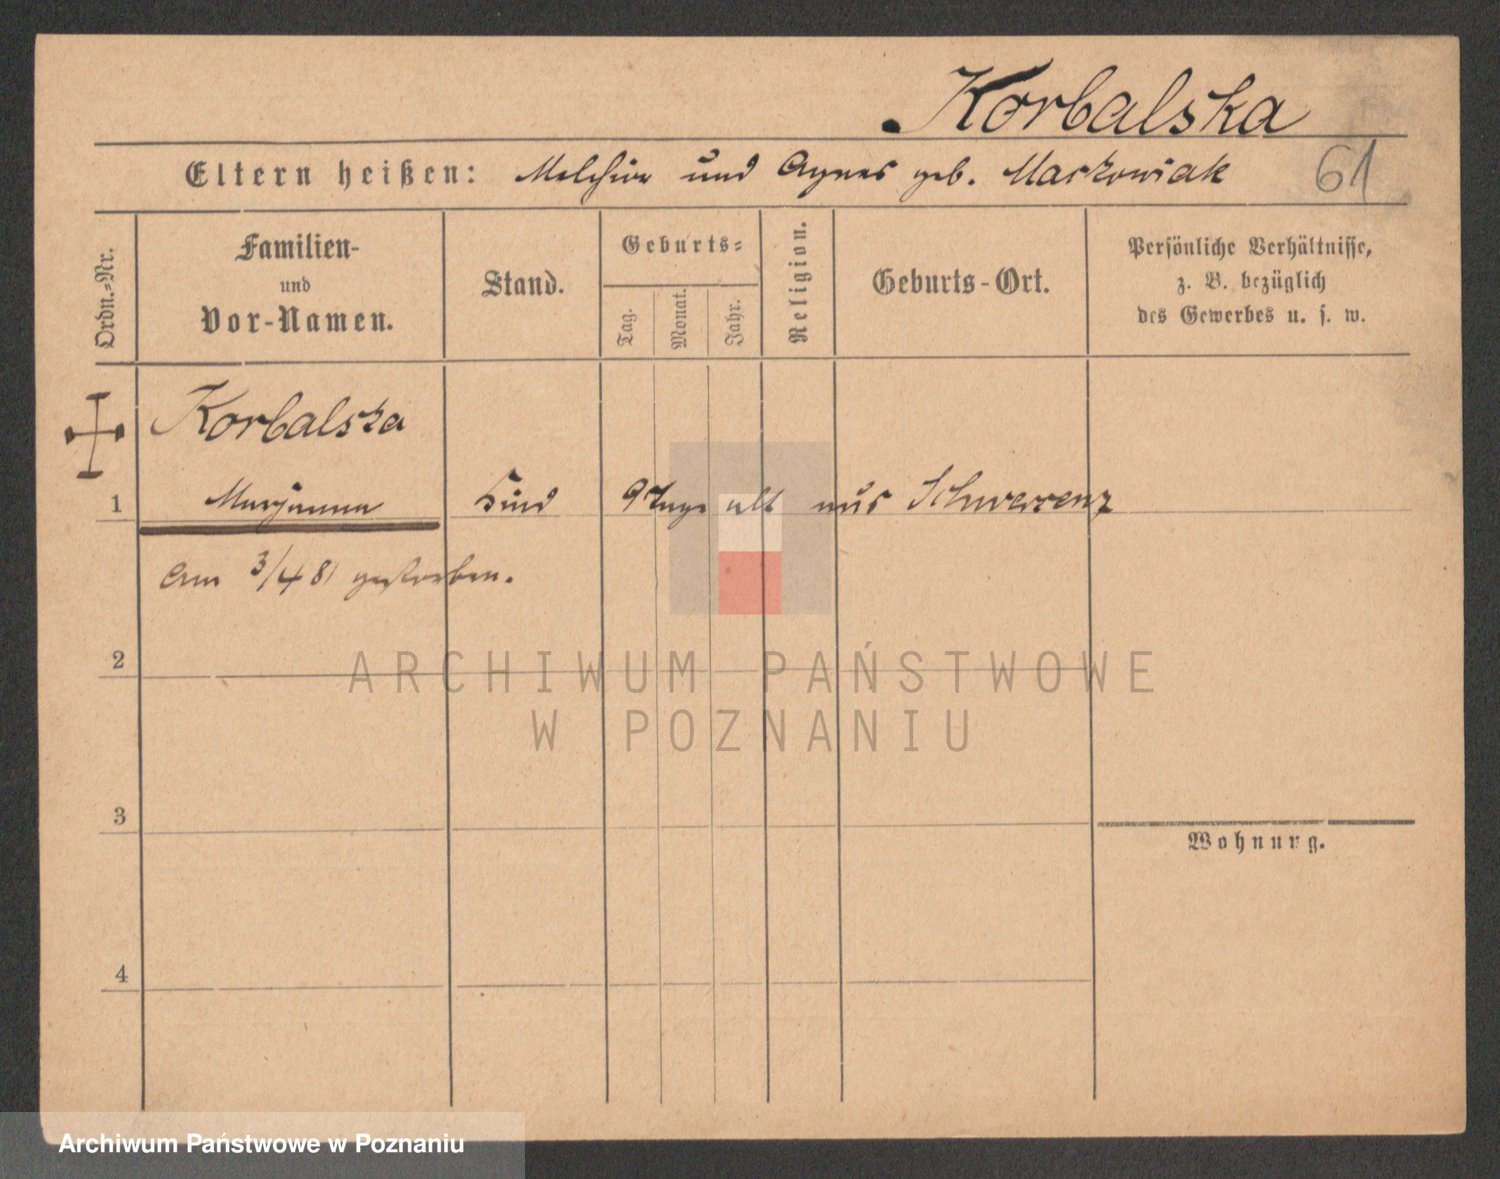 Korbalska
Eltern heißen: Melchior und Agnes geb. Maćkowiak 61
Ordn.=Nr.
Familien-
und
Vor-Namen.
Stand.
Geburts=
Tag.
Monat.
Jahr.
Religion.
Geburts-Ort.
Persönliche Verhältnisse,
z. B. bezüglich
des Gewerbes u. s. w.
Korbalska
1 Marjanna Kind 9 Tage alt aus Schwersenz
Am 3/4 81 gestorben.
2
3
Wohnung.
4
ARCHIWUM PAŃSTWOWE
W POZNANIU
Archiwum Państwowe w Poznaniu